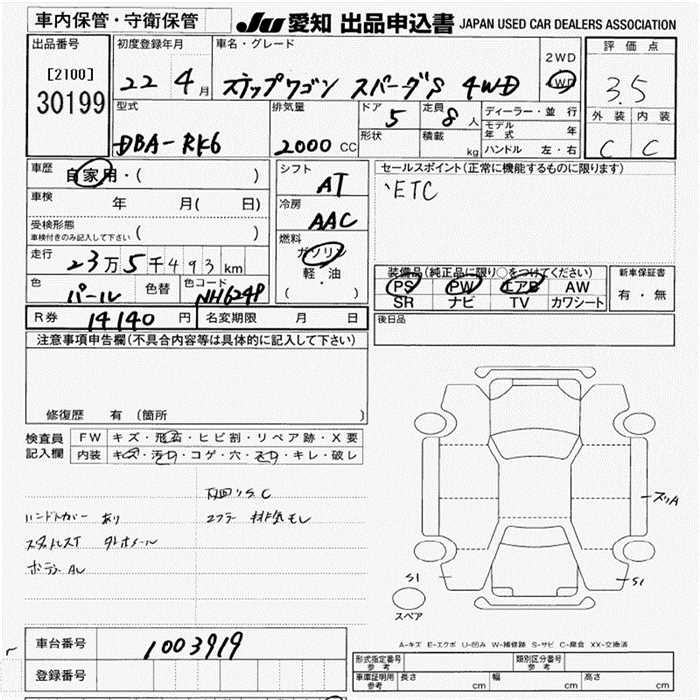 車内保管・守衛保管 JU 愛知 出品申込書 JAPAN USED CAR DEALERS ASSOCIATION
出品番号 初度登録年月 車名・グレード 2WD 評価点
[2100] 22年 4月 ステップワゴン スパーダS 4WD 4WD 3.5
30199
型式 排気量 ドア 定員 ディーラー・並行 外装 内装
DBA-RK6 2000 CC 5 8人 モデル年式 年 C C
形状 積載 kg ハンドル 左・右
車歴 自家用・( ) シフト AT セールスポイント(正常に機能するものに限ります)
車検 年 月( 日) 冷房 AAC ETC
受検形態 車検付きのみ記入して下さい ( )
走行 23万5千493km 燃料 ガソリン 軽・油 ( )
装備品(純正品に限り○をつけてください) 新車保証書
色 パール 色替 色コード NH624P PS PW エアB AW 有・無
SR ナビ TV カワシート
R券 14140円 名変期限 月 日 後日品
注意事項申告欄(不具合内容等は具体的に記入して下さい)
修復歴 有 (箇所 )
検査員 FW キズ・飛石・ヒビ割・リペア跡・X要
記入欄 内装 キズ・汚れ・コゲ・穴・スレ・キレ・破レ
ハンドルカバー あり
マフラー 排気モレ
スタッドレスT
S1
S1
スペア
A-キズ E-エクボ U-凹み W-補修跡 S-サビ C-腐食 XX-交換済
車台番号 1003919
登録番号
形式指定番号 参考 類別区分番号 参考
車庫証明用 参考 長さ cm 幅 cm 高さ cm